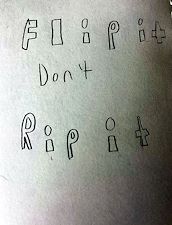 Flip it
Don't
Rip it